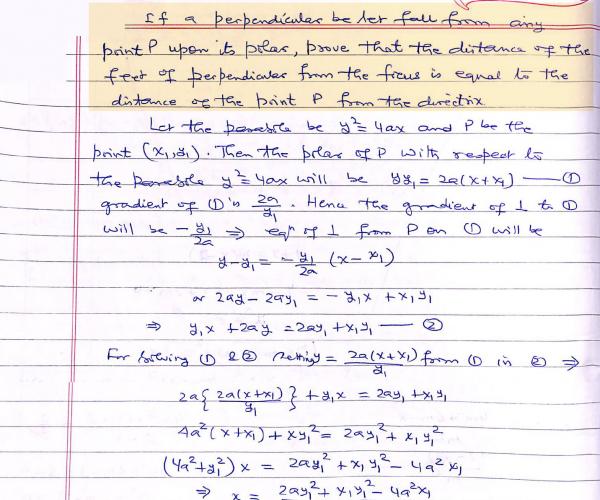 If a perpendicular be let fall from any
point P upon its polar, prove that the distance of the
feet of perpendicular from the focus is equal to the
distance of the point P from the directrix
Let the parabola be y² = 4ax and P be the
point (x₁, y₁). Then the polar of P with respect to
the parabola y² = 4ax will be yy₁ = 2a(x+x₁) — ①
gradient of ① is 2a/y₁. Hence the gradient of ⊥ to ①
will be -y₁/2a ⇒ eqⁿ of ⊥ from P on ① will be
y-y₁ = -y₁/2a (x-x₁)
or 2ay - 2ay₁ = -y₁x + x₁y₁
⇒ y₁x + 2ay = 2ay₁ + x₁y₁ — ②
For solving ① & ② putting y = 2a(x+x₁)/y₁ from ① in ② ⇒
2a{2a(x+x₁)/y₁} + y₁x = 2ay₁ + x₁y₁
4a²(x+x₁) + xy₁² = 2ay₁² + x₁y₁²
(4a²+y₁²)x = 2ay₁² + x₁y₁² - 4a²x₁
⇒ x = 2ay₁² + x₁y₁² - 4a²x₁